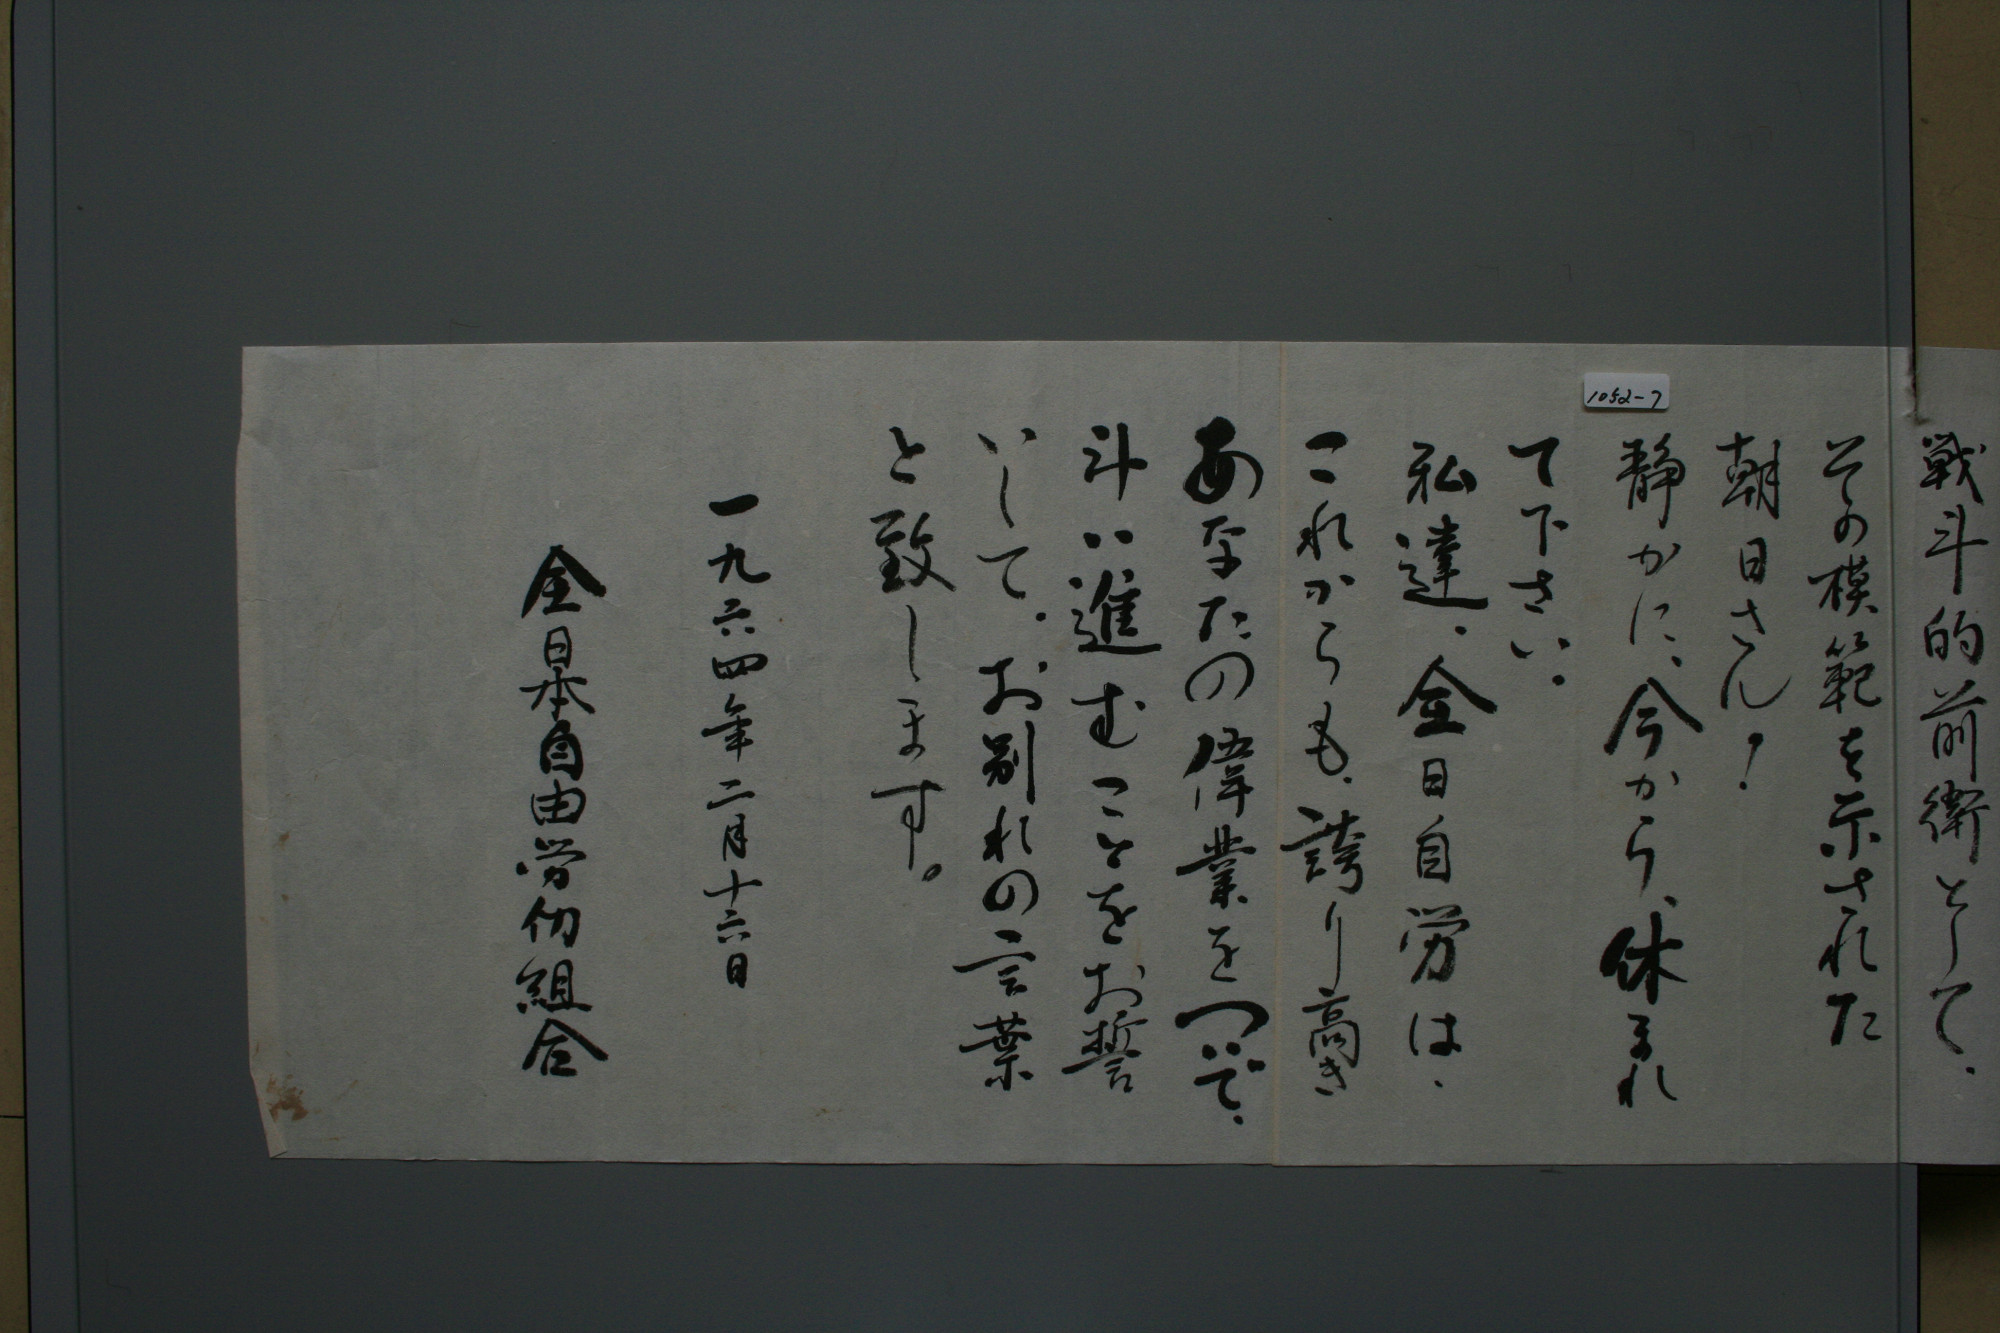 戦斗的前衛として、
その模範を示された
朝日さん！
静かに、今から、休まれ
て下さい。
私達、全日自労は、
これからも、誇り高き
あなたの偉業をついで、
斗い進むことをお誓
いして、お別れの言葉
と致します。
一九六四年二月十六日
全日本自由労仂組合
1052-7